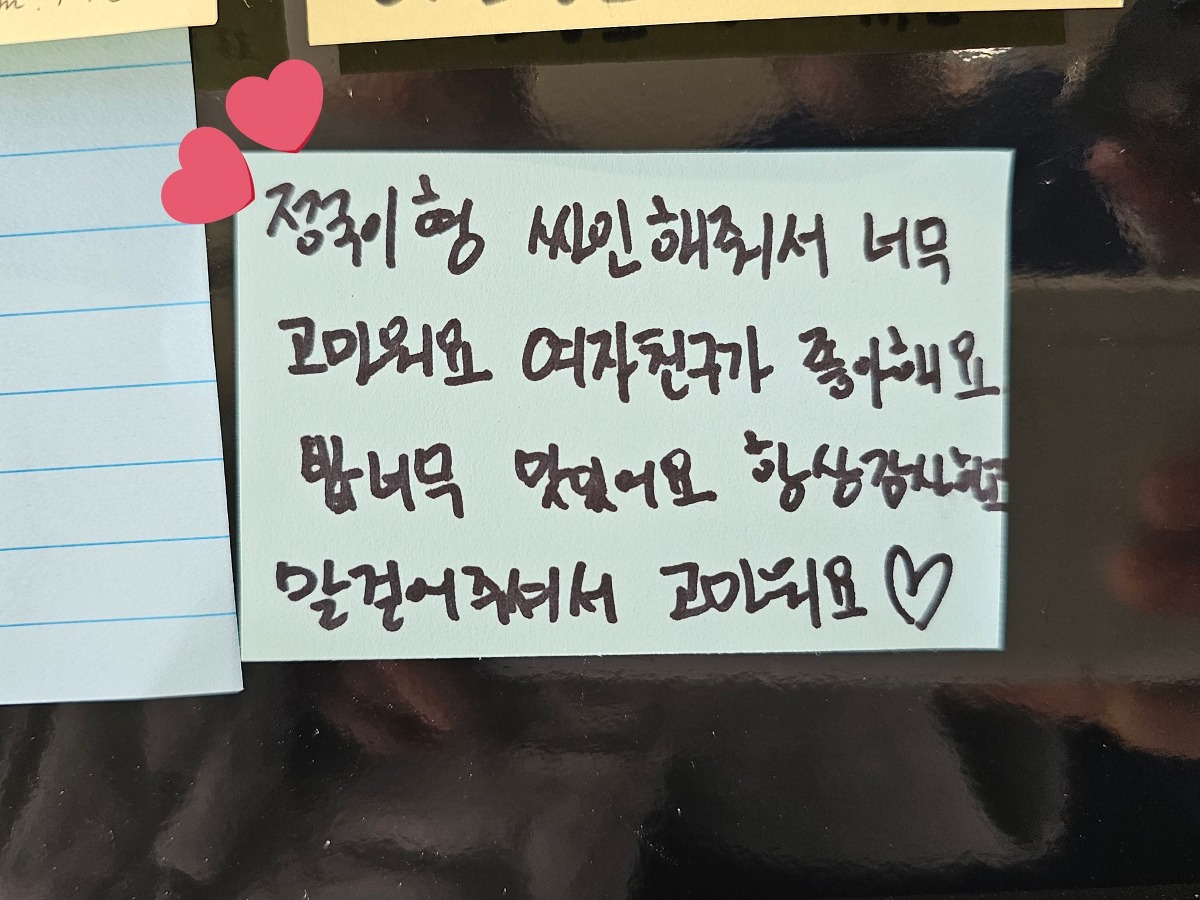 정국이형 싸인해줘서 너무
고마워요 여자친구가 좋아해요
밥너무 맛있어요 항상감사해요
말걸어주셔서 고마워요♡